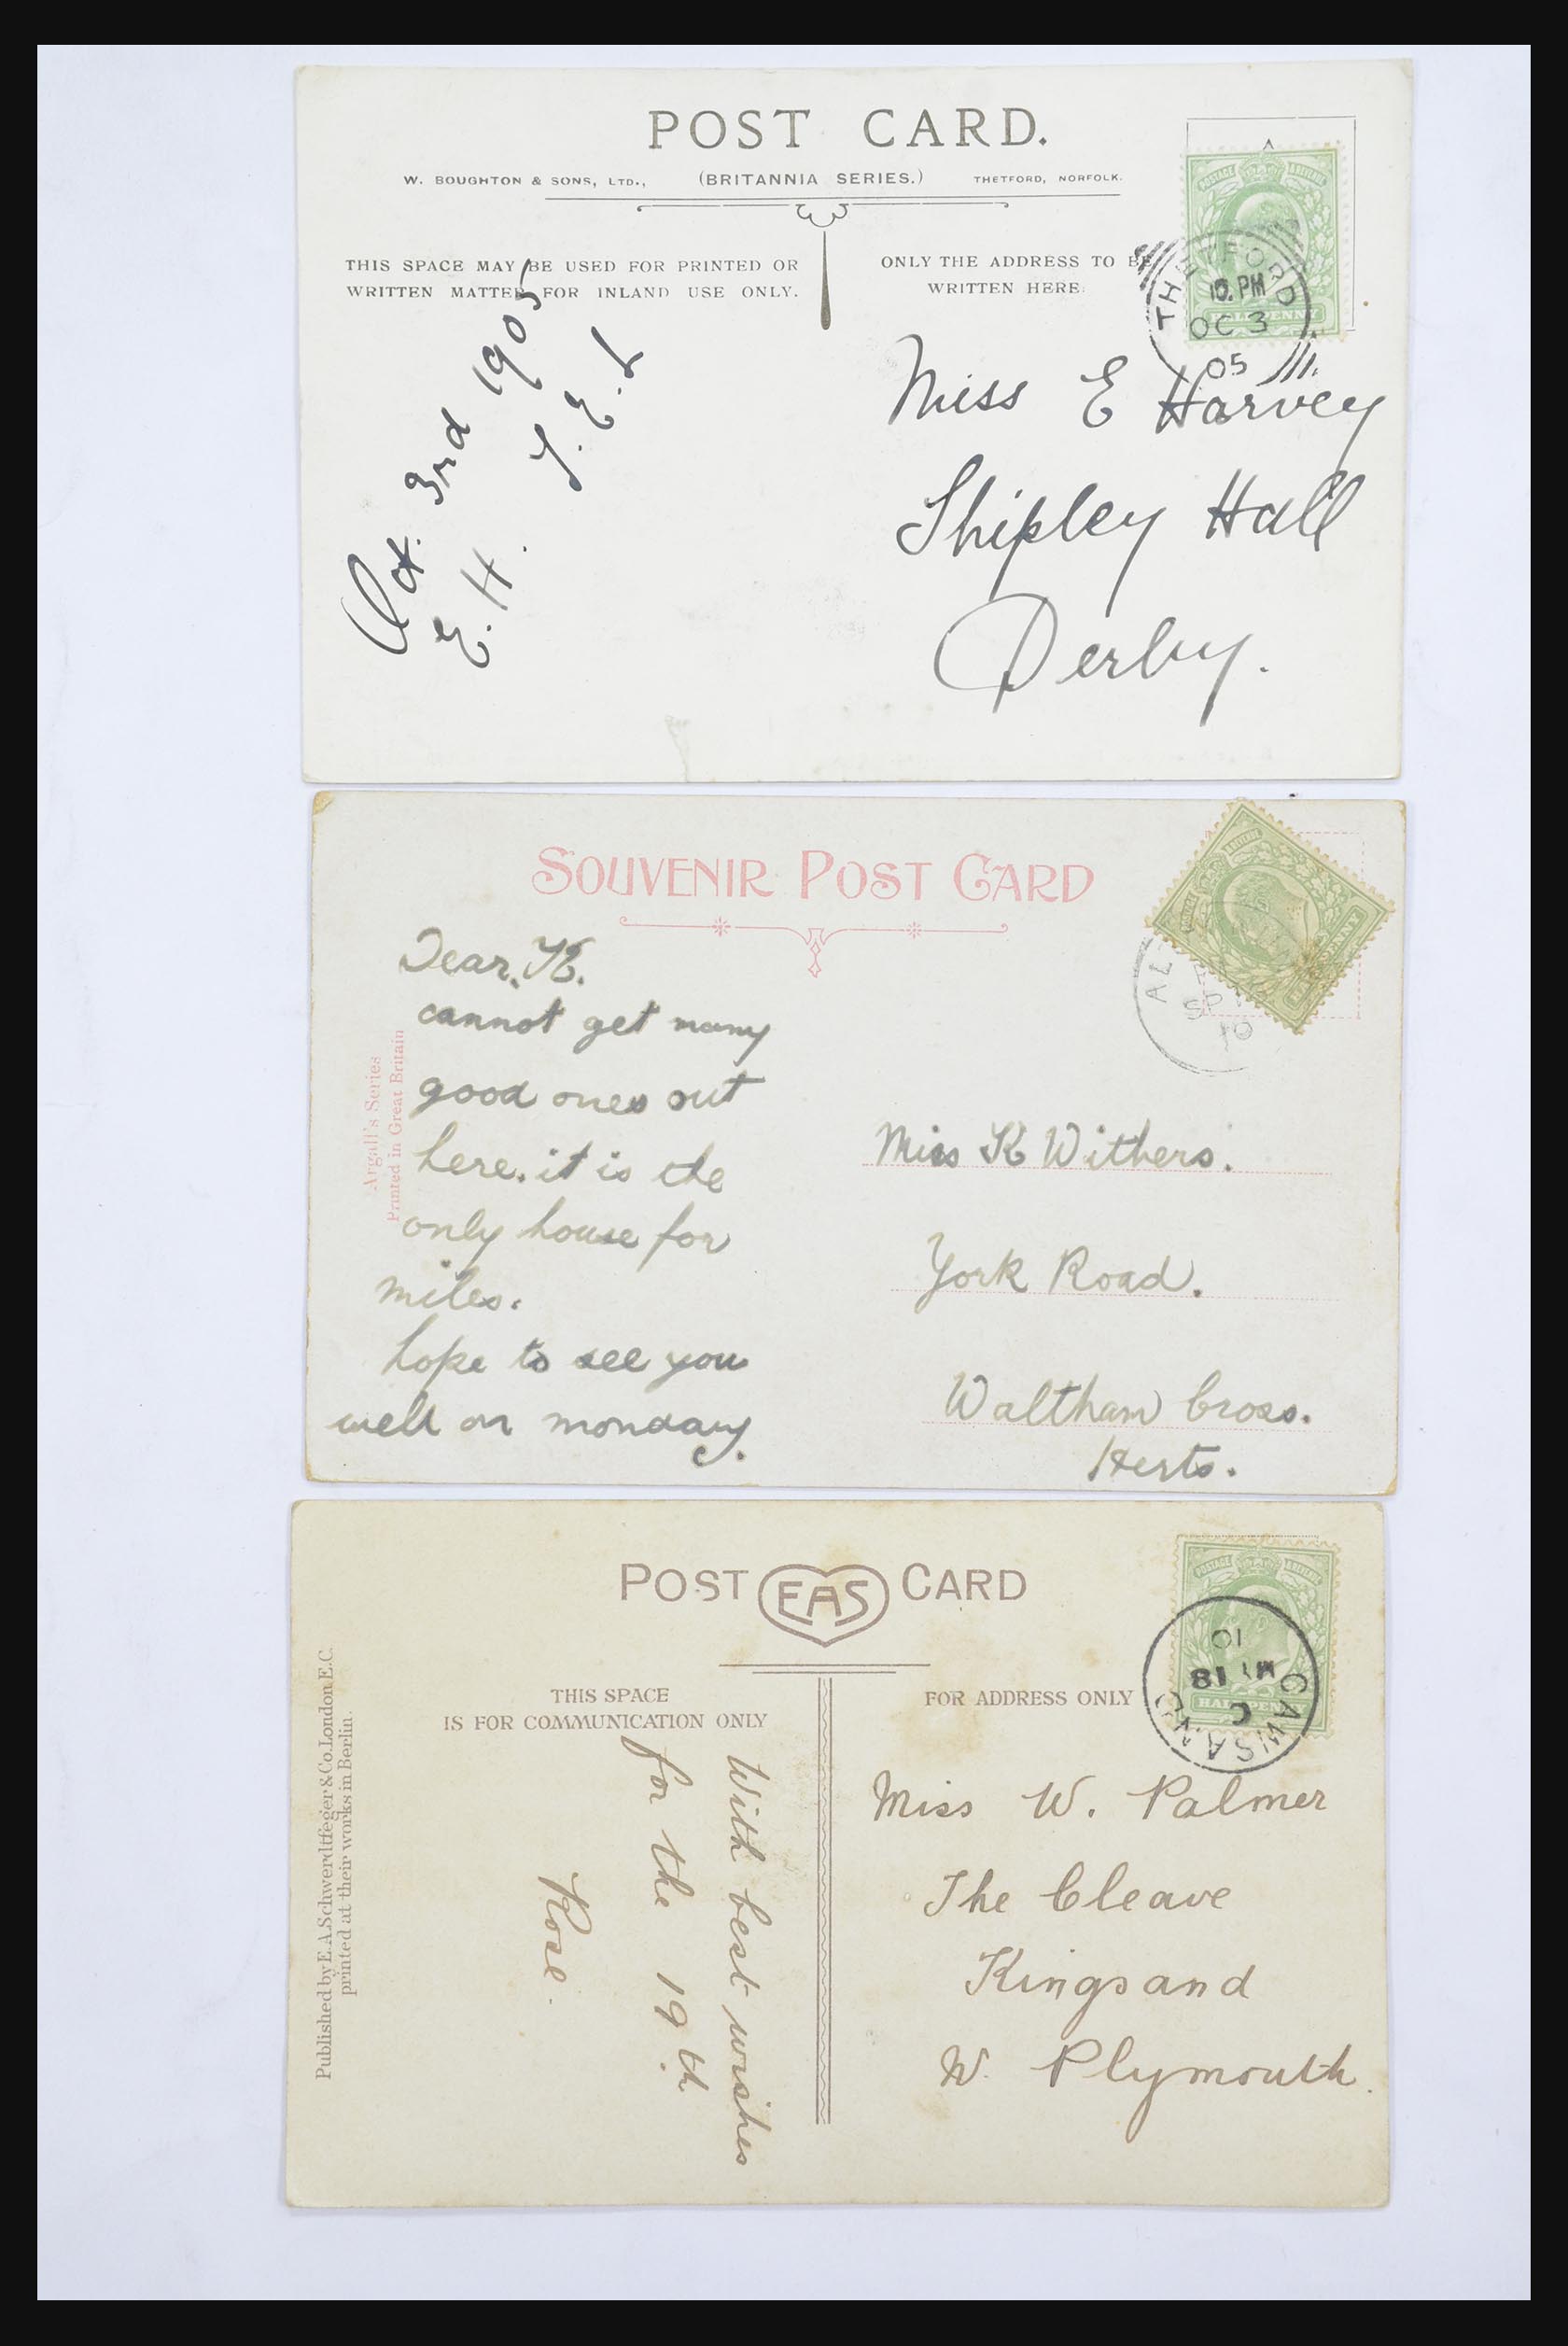 POST CARD.
W. BOUGHTON & SONS, LTD., (BRITANNIA SERIES.) THETFORD, NORFOLK.
THIS SPACE MAY BE USED FOR PRINTED OR
WRITTEN MATTER FOR INLAND USE ONLY.
ONLY THE ADDRESS TO BE
WRITTEN HERE.
POSTAGE REVENUE
HALFPENNY
THETFORD
10. PM
OC 3
05
Oct. 3rd 1905
E. H.
Miss E Harvey
Shipley Hall
Derby.
SOUVENIR POST CARD
Argall's Series
Printed in Great Britain
Dear. K.
cannot get many
good ones out
here. it is the
only house for
miles.
hope to see you
well on monday.
AL
10
Miss K Withers.
York Road.
Waltham Cross.
Herts.
POST EAS CARD
Published by E.A.Schwerdtfeger & Co. London E.C.
printed at their works in Berlin.
THIS SPACE
IS FOR COMMUNICATION ONLY
FOR ADDRESS ONLY
HALFPENNY
CAWSAND
C
MY 18
10
With best wishes
for the 19th
Rose.
Miss W. Palmer
The Cleave
Kingsand
W. Plymouth.